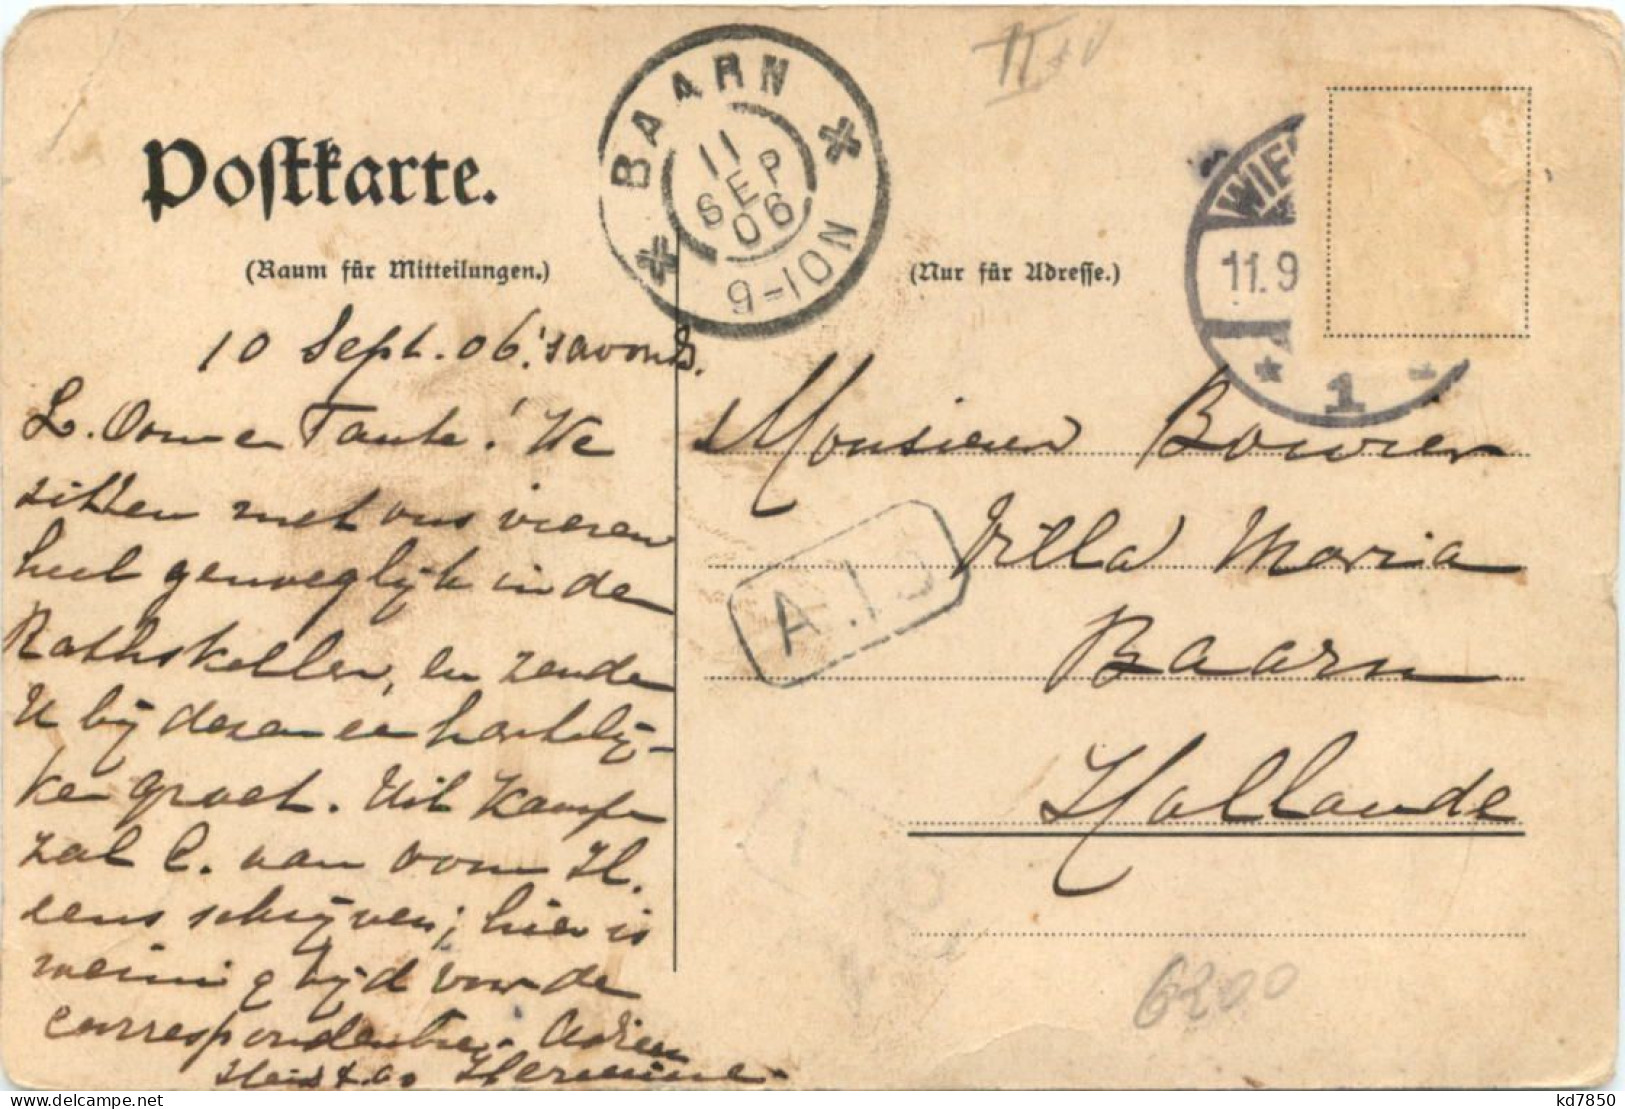 Postkarte.
(Raum für Mitteilungen.)
(Nur für Adresse.)
BAARN
11
SEP
06
9-10N
WIE
11.9
1
A.I.
10 Sept. 06. 's avonds.
L. Oom en Tante! We
zitten met ons vieren
heel genoeglijk in de
Rathskeller, en zenden
U bij dezen een hartelij-
ke groet. Uit Kampf
zal C. aan oom H.
eens schrijven; hier is
weinig tijd voor de
correspondentie. Adrien
Hermine.
Monsieur Bouvier
Villa Maria
Baarn
Hollande
6200
kd7850